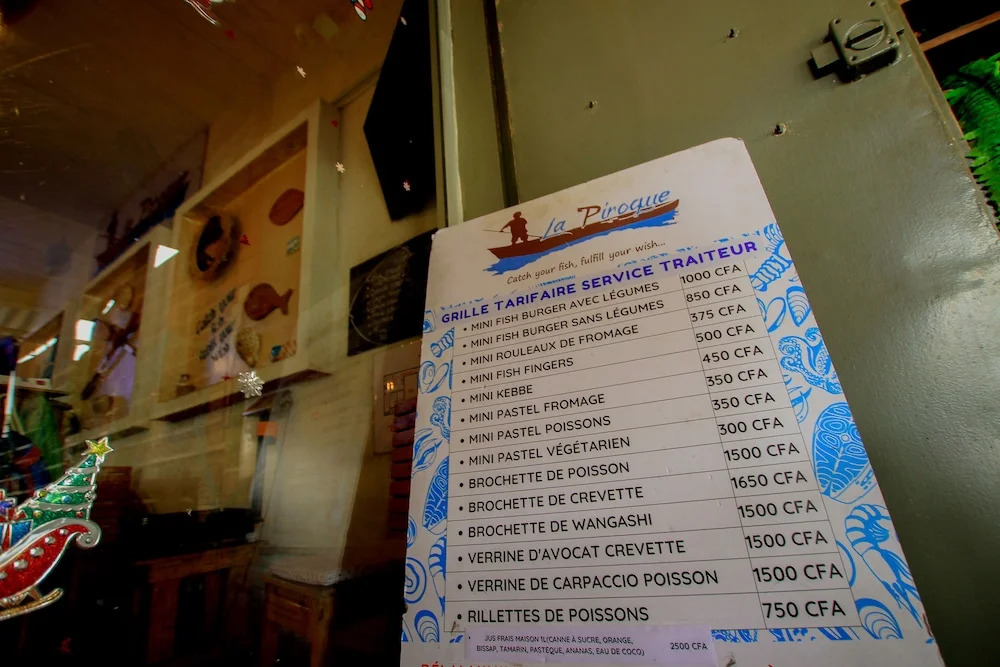 la Pirogue
Catch your fish, fulfill your wish...
GRILLE TARIFAIRE SERVICE TRAITEUR
• MINI FISH BURGER AVEC LÉGUMES 1000 CFA
• MINI FISH BURGER SANS LÉGUMES 850 CFA
• MINI ROULEAUX DE FROMAGE 375 CFA
• MINI FISH FINGERS 500 CFA
• MINI KEBBE 450 CFA
• MINI PASTEL FROMAGE 350 CFA
• MINI PASTEL POISSONS 350 CFA
• MINI PASTEL VÉGÉTARIEN 300 CFA
• BROCHETTE DE POISSON 1500 CFA
• BROCHETTE DE CREVETTE 1650 CFA
• BROCHETTE DE WANGASHI 1500 CFA
• VERRINE D'AVOCAT CREVETTE 1500 CFA
• VERRINE DE CARPACCIO POISSON 1500 CFA
• RILLETTES DE POISSONS 750 CFA
JUS FRAIS MAISON 1L(CANNE À SUCRE, ORANGE,
BISSAP, TAMARIN, PASTÈQUE, ANANAS, EAU DE COCO) 2500 CFA